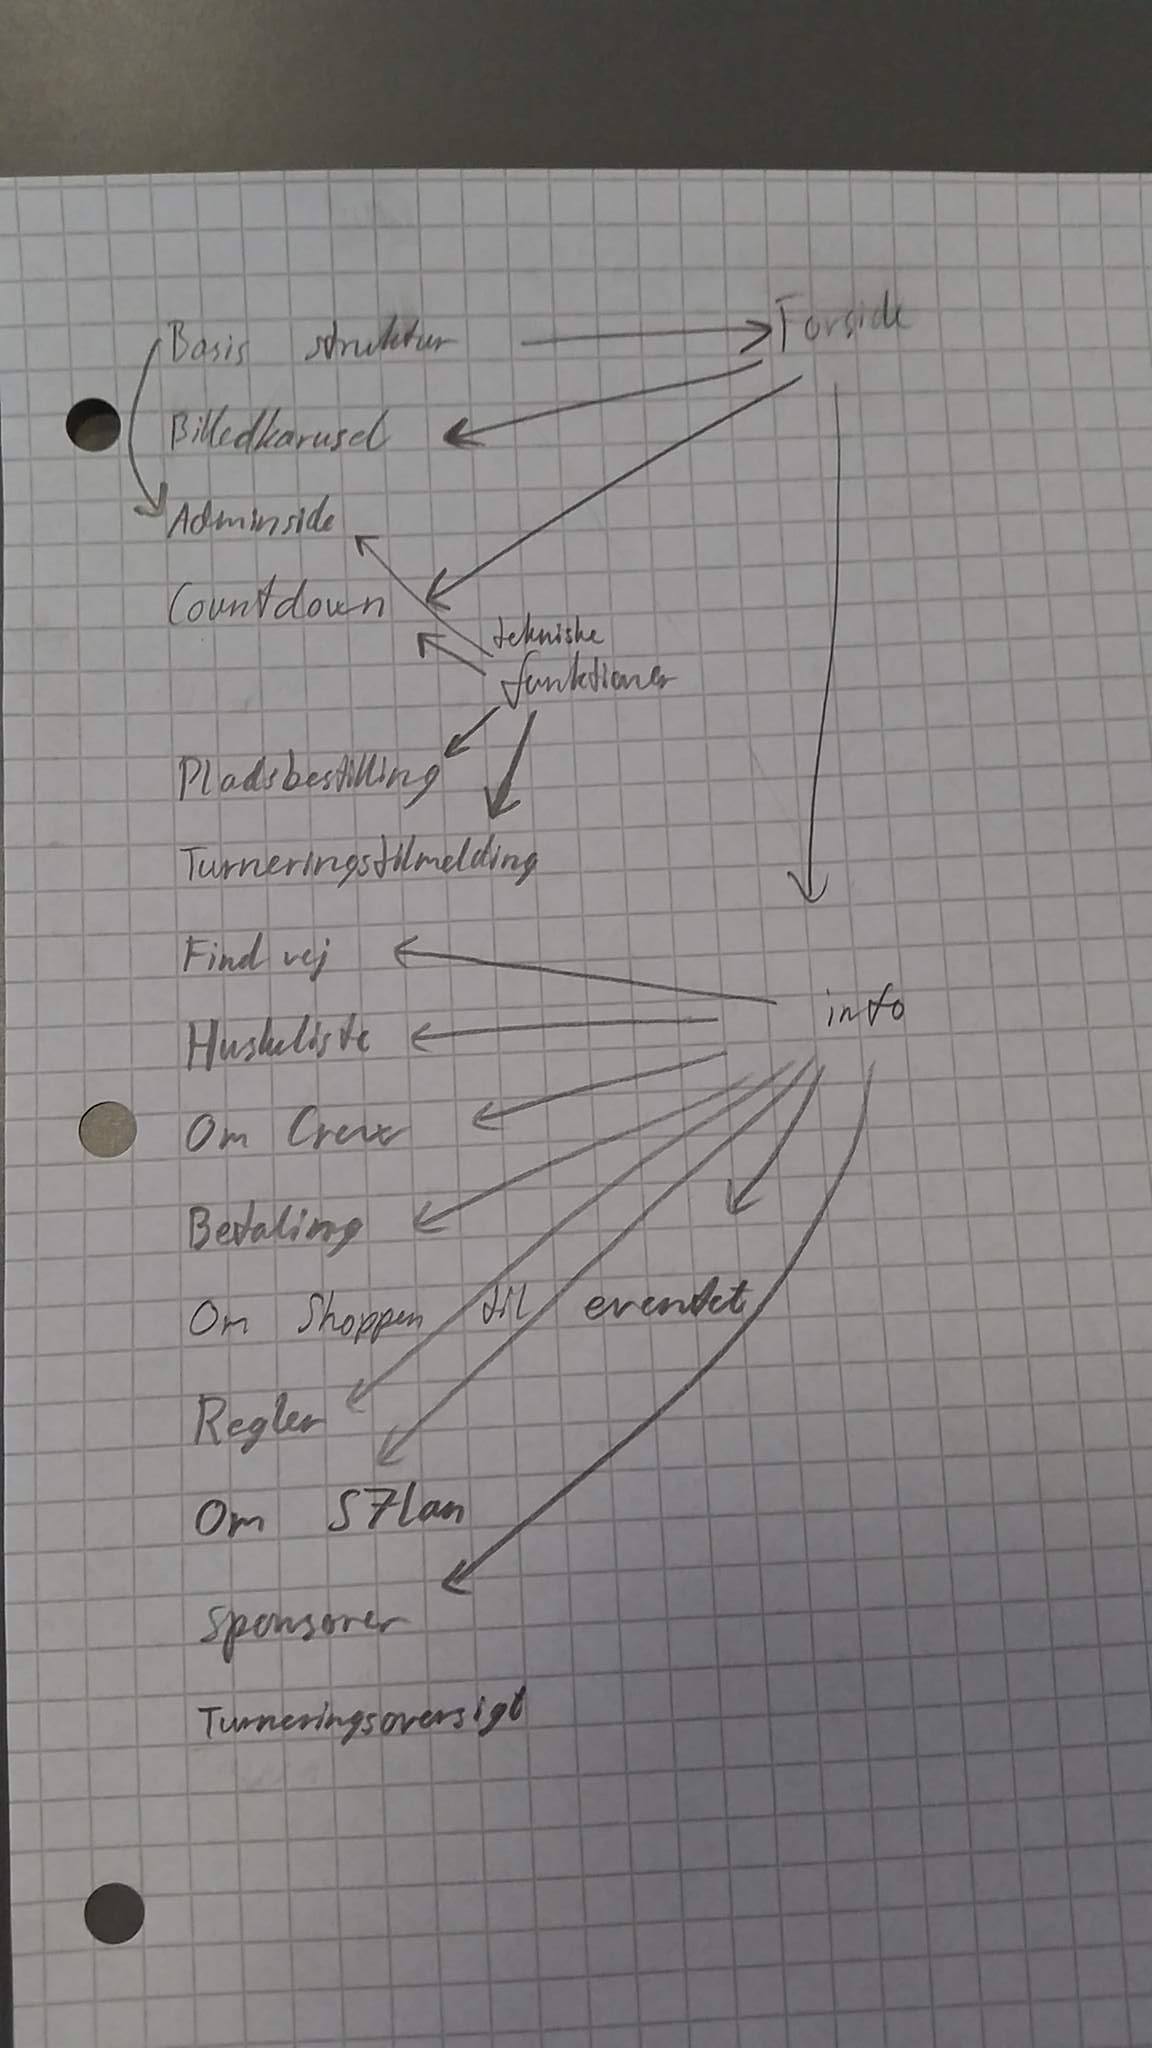 Basis struktur
Forside
Billedkarusel
Adminside
Countdown
tekniske
funktioner
Pladsbestilling
Turneringstilmelding
Find vej
info
Huskeliste
Om Crew
Betaling
Om Shoppen til eventet
Regler
Om S7lan
Sponsorer
Turneringsoversigt